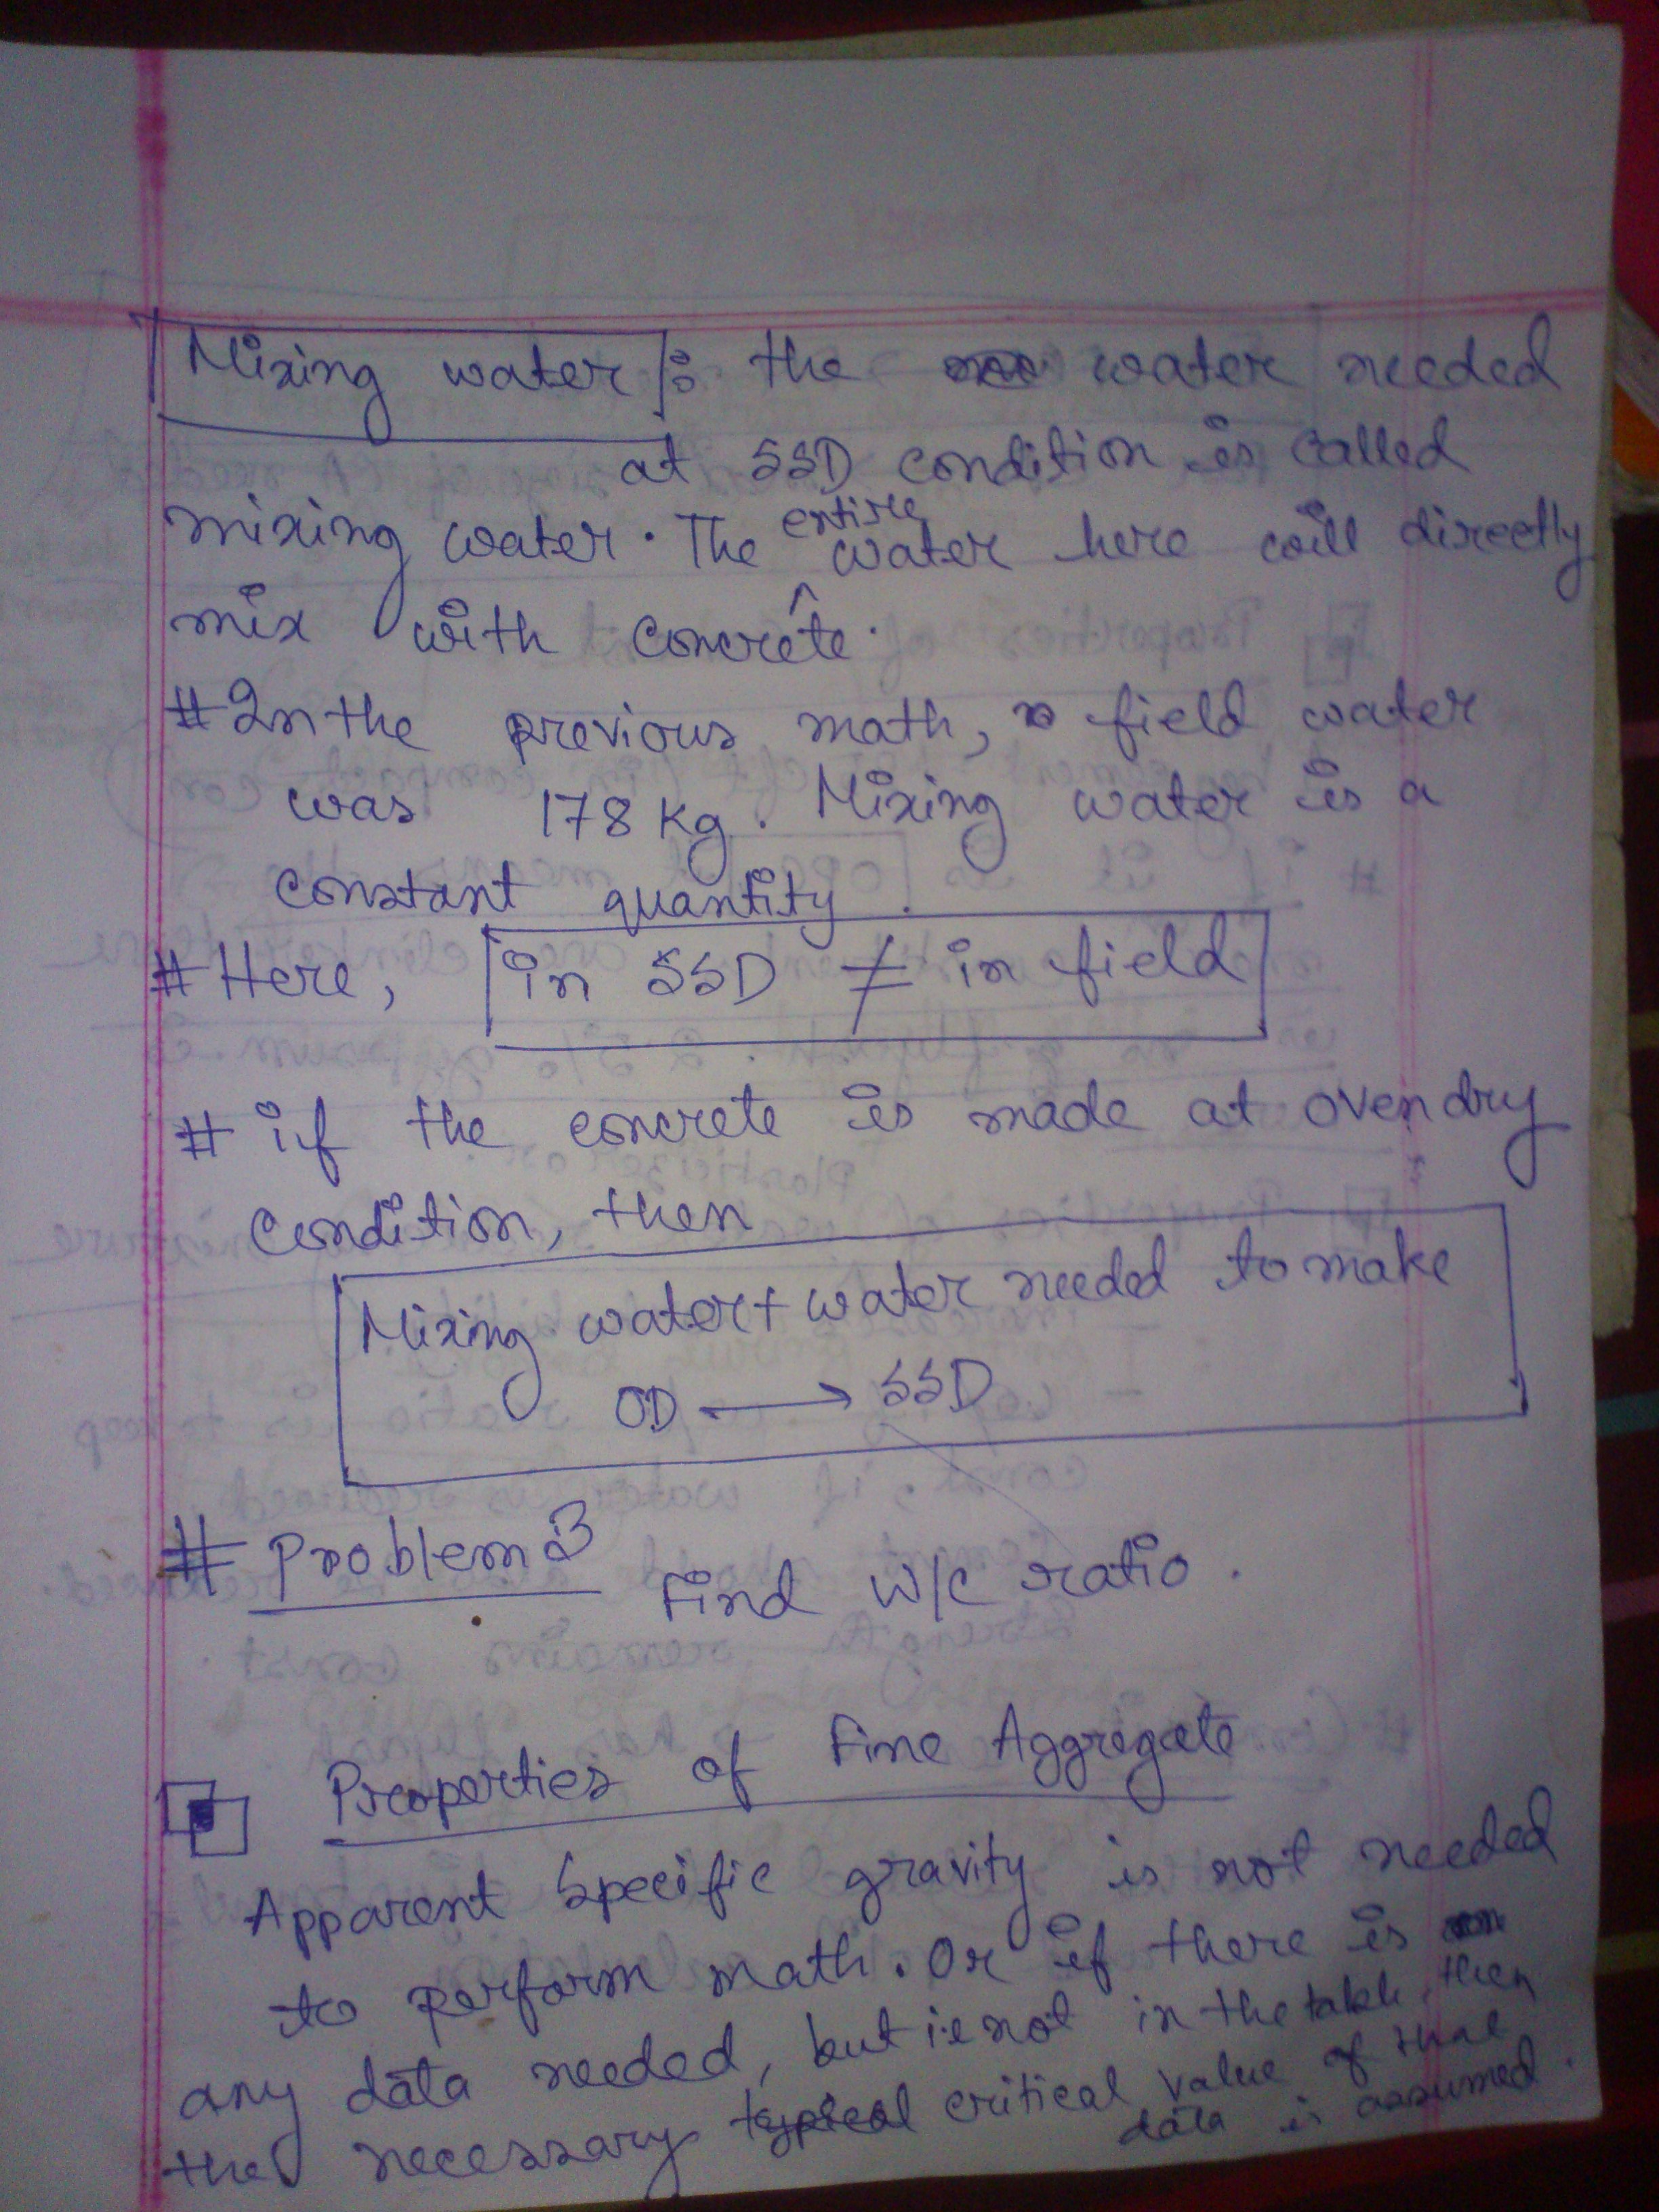 Mixing water : the water needed
at SSD condition is called
mixing water. The entire water here will directly
mix with concrete.
# In the previous math, field water
was 178 kg. Mixing water is a
constant quantity.
# Here, in SSD ≠ in field
# if the concrete is made at oven dry
condition, then
Mixing water + water needed to make
OD → SSD
# Problem 3
Find W/C ratio.
Properties of Fine Aggregate
Apparent Specific gravity is not needed
to perform math. Or if there is
any data needed, but is not in the table, then
the necessary typical critical value of that
data is assumed.